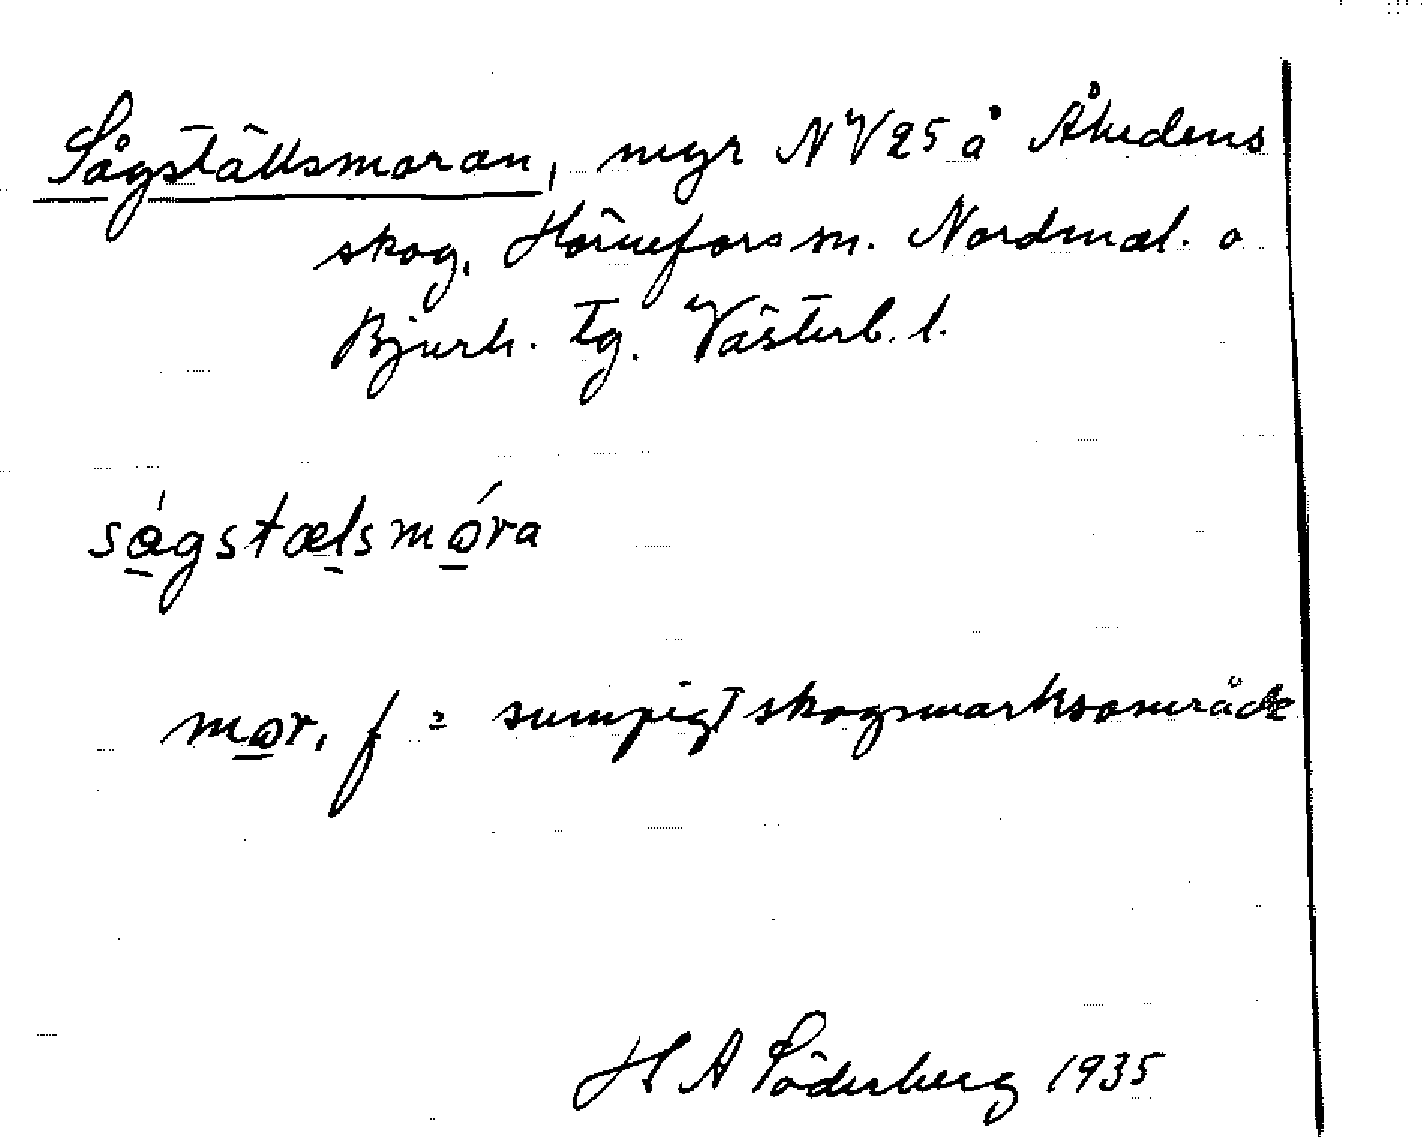 Sågställsmoran, myr NV25 å Åhedens
skog, Hörnefors sn. Nordmal. o
Bjurh. tg. Västerb. l.
sågstælsmóra
mor, f = sumpigt skogsmarksområde
H A Söderberg 1935